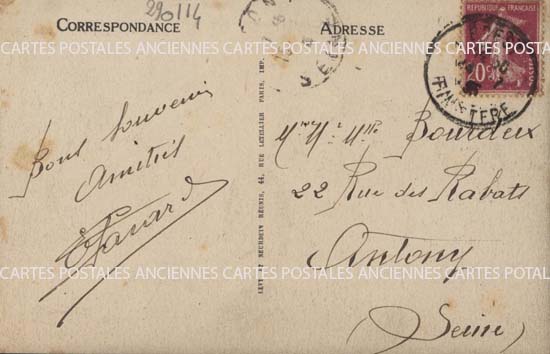 290114
CORRESPONDANCE
ADRESSE
RÉPUBLIQUE FRANÇAISE
20c
FINISTERE
CARTES POSTALES ANCIENNES CARTES POSTALES ANCIENNES CARTES POSTALES
Bons Souvenirs
Amitiés
Mr Me Mlle Bourdeix
22 Rue des Rabats
Antony
(Seine)
LEVY ET NEURDEIN RÉUNIS, 44, RUE LETELLIER PARIS, IMP.
CARTES POSTALES ANCIENNES CARTES POSTALES ANCIENNES CARTES POSTALES